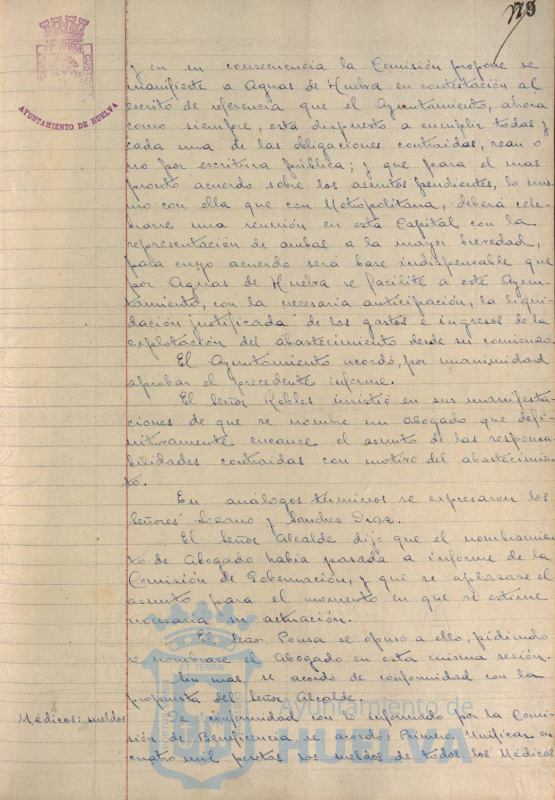 128
AYUNTAMIENTO DE HUELVA
y en su consecuencia la Comisión propone se
manifieste a Aguas de Huelva en contestación al
escrito de referencia que el Ayuntamiento, ahora
como siempre, está dispuesto a cumplir todas y
cada una de las obligaciones contraidas, sean o
no por escritura pública; y que para el mas
pronto acuerdo sobre los asuntos pendientes, lo mis-
mo con ella que con Metropolitana, deberá cele-
brarse una reunión en esta Capital con la
representación de ambas a la mayor brevedad,
para cuyo acuerdo será base indispensable que
por Aguas de Huelva se facilite a este Ayun-
tamiento, con la necesaria anticipación, la liqui-
dación justificada de los gastos e ingresos de la
explotación del abastecimiento desde su comienzo.
El Ayuntamiento acordó, por unanimidad
aprobar el precedente informe.
El Señor Robles insistió en sus manifesta-
ciones de que se nombre un abogado que defi-
nitivamente encauce el asunto de las responsa-
bilidades contraidas con motivo del abastecimien-
to.
En análogos términos se expresaron los
Señores Lozano y Sanchez Diaz.
El Señor Alcalde dijo que el nombramien-
to de Abogado había pasado a informe de la
Comisión de Gobernación, y que se aplazase el
asunto para el momento en que se estime
necesaria su actuación.
El Señor Pousa se opuso a ello, pidiendo
se nombrase el Abogado en esta misma sesión.
Sin mas se acordo de conformidad con la
propuesta del Señor Alcalde.
Médicos: sueldos
De conformidad con lo informado por la Comi-
sión de Beneficencia se acordo: Primero. Unificar en
cuatro mil pesetas los sueldos de todos los Médicos
Ayuntamiento de
HUELVA